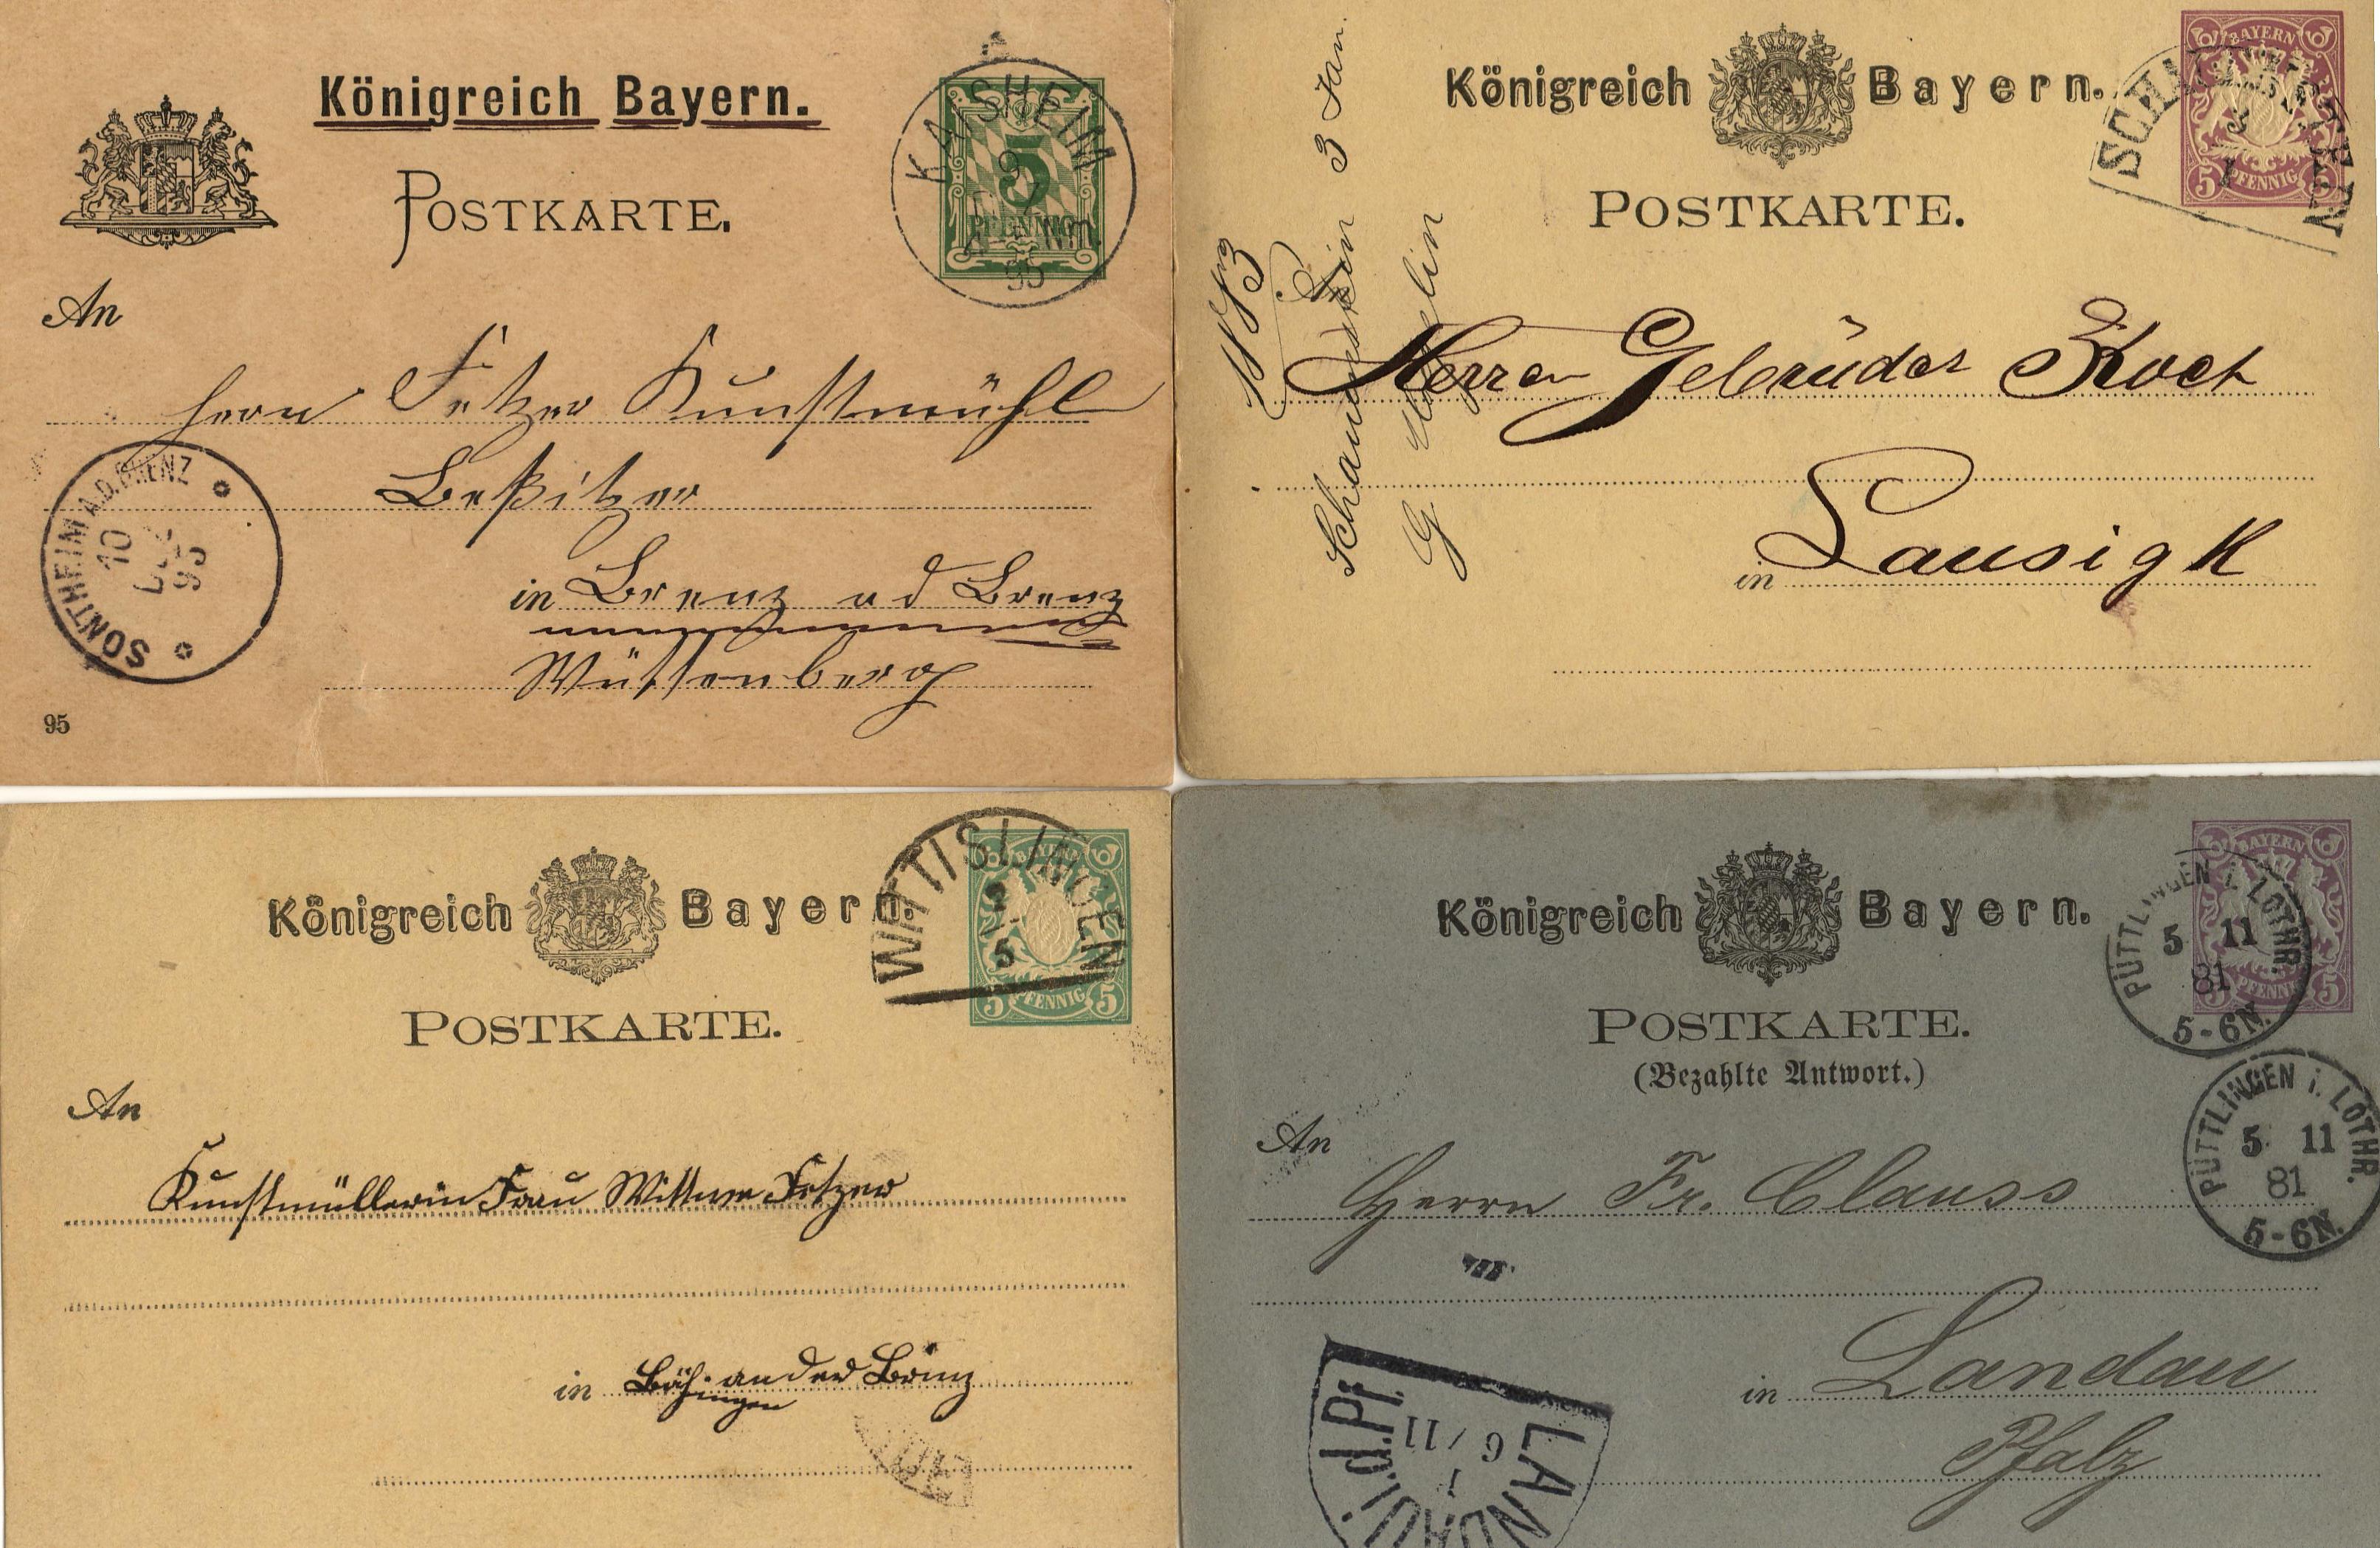 Königreich Bayern.
POSTKARTE.
KAISHEIM
9
5
PFENNIG
95
An
Herrn Fetzer Kunstmühl
Beßitzer
in Brenz a d Brenz
Württenberg
SONTHEIM A.D. BRENZ
10
DEZ
95
95
Königreich Bayern.
POSTKARTE.
BAYERN
5 PFENNIG 5
3
1
3 Jan.
An
Herren Gebrüder Koch
in Lausigk
Königreich Bayern.
POSTKARTE.
WITTISLINGEN
2
5
BAYERN
5 PFENNIG 5
An
Kunstmüllerin Frau Wittwe Fetzer
in Bäch. an der Brenz
ingen
Königreich Bayern.
POSTKARTE.
(Bezahlte Antwort.)
BAYERN
5 PFENNIG 5
PÜTTLINGEN i. LOTHR.
5 11
81
5-6N.
PÜTTLINGEN i. LOTHR.
5 11
81
5-6N.
An
Herrn Fr. Clauss
in Landau
Pfalz
LANDAU i.d.Pf.
6/11
1